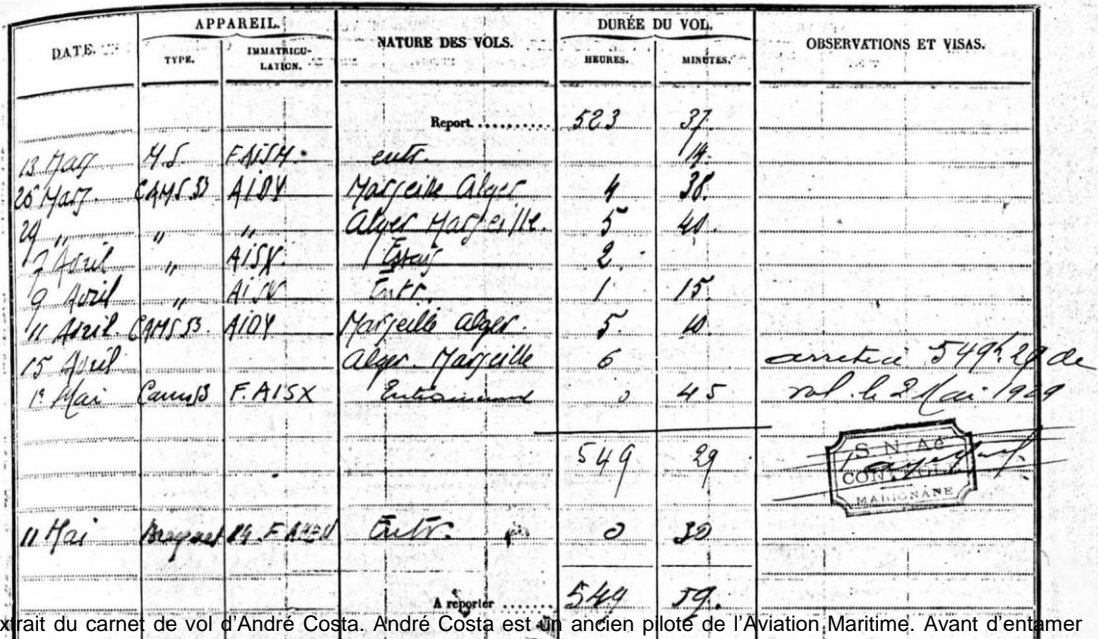 DATE. APPAREIL. NATURE DES VOLS. DURÉE DU VOL. OBSERVATIONS ET VISAS.
TYPE. IMMATRICU-LATION. HEURES. MINUTES.
Report......... 523 37.
13 Mars M.S. F.AISH. entr. 14.
26 Mars. CAMS 53 AIDY Marseille Alger 4 38.
29 " " " Alger Marseille. 5 40.
7 Avril " AISX Essais 2.
9 Avril " AISX Entr. 1 15
11 Avril. CAMS 53. AIDY Marseille Alger. 5. 10.
15 Avril Alger. Marseille 6 arrêté à 549h29 de
1e Mai Cams 53 F.AISX Entrainement 0 45 vol. le 2 Mai 1929
549 29
S.N.Aé
CONTROLE
MARIGNANE
11 Mai Breguet 14. F Entr. 0 30
A reporter ...... 549 59.
xtrait du carnet de vol d’André Costa. André Costa est un ancien pilote de l’Aviation Maritime. Avant d’entamer